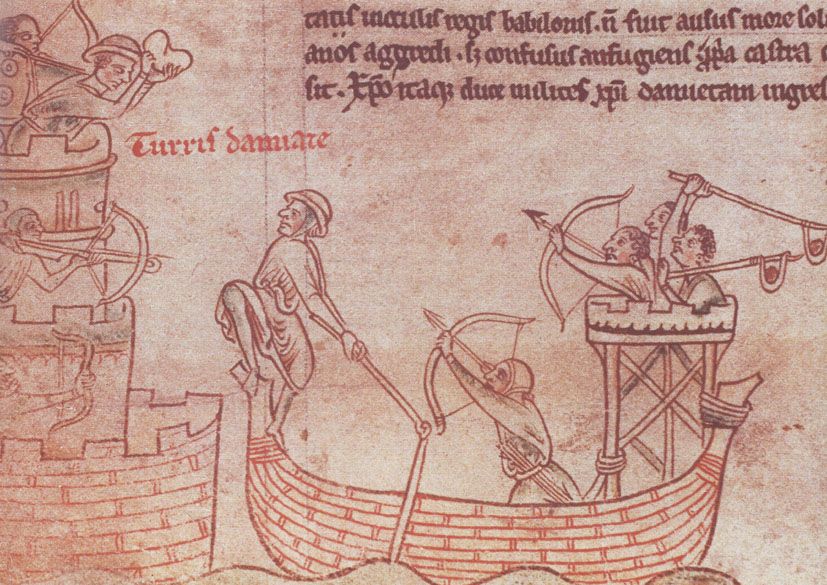 tatis incensis regis babilonis. ñ fuit ausus more sol
anos aggredi . sꝫ confusus aufugiens ꝓpa castra
sit . Xp̄o itaqꝫ duce milites xp̄i damietam ingres
Turris damiate